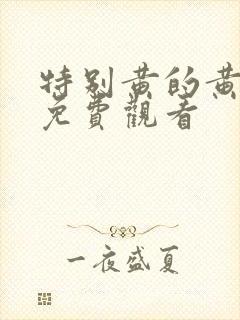 特别黄的黄
免費觀看
一夜盛夏